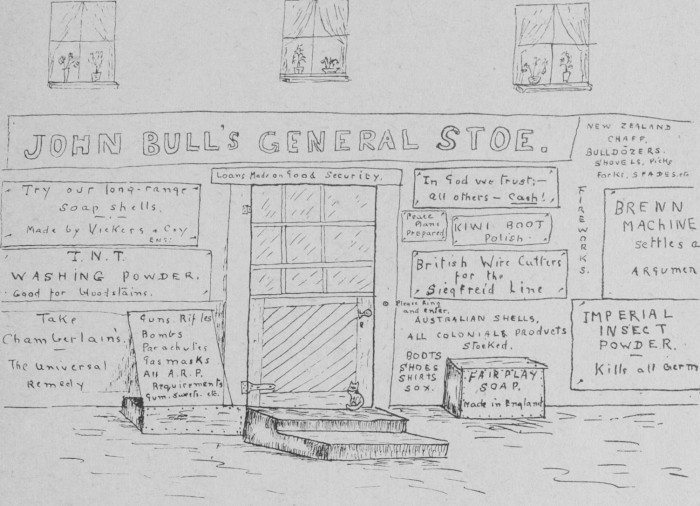 JOHN BULL'S GENERAL STOE.
Loans Made on Good Security.
Try our long-range
soap shells.
Made by Vickers & Coy
ENG.
T.N.T.
WASHING POWDER.
Good for bloodstains.
Take
Chamberlain's.
The Universal
Remedy
Guns. Rifles
Bombs
Parachutes
Gas masks
All A.R.P.
Requirements
Gum. sweets. etc.
In God we trust;—
all others — Cash!
Peace
Plans
Prepared
KIWI BOOT
Polish.
British Wire Cutters
for the
Siegfreid Line
Please Ring
and enter.
AUSTRALIAN SHELLS,
ALL COLONIALS PRODUCTS
Stocked.
BOOTS
S'HOES
SHIRTS
SOX.
FAIRPLAY
SOAP.
Made in England
NEW ZEALAND
CHAFF.
BULLDOZERS.
SHOVELS, Picks
Forks, SPADES. etc
FIREWORKS.
BRENN
MACHINE
settles a
ARGUMEN
IMPERIAL
INSECT
POWDER.
Kills all Germ